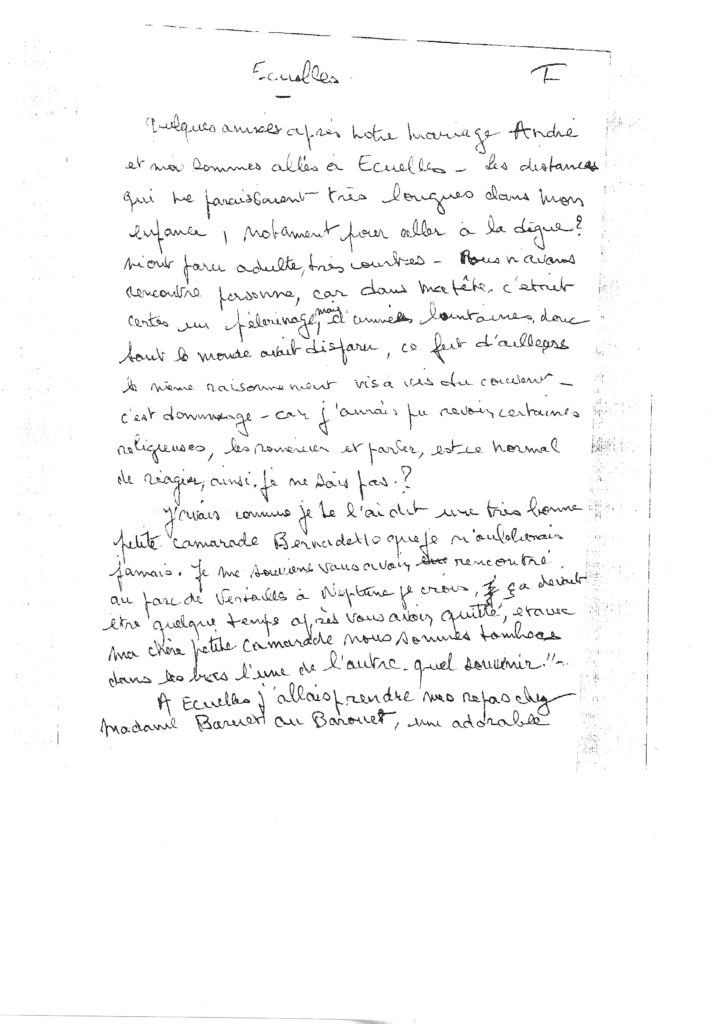 Ecuelles. I
Quelques années après notre mariage André
et moi sommes allés à Ecuelles – les distances
qui me paraissaient très longues dans mon
enfance, notament pour aller à la digue?
m'ont paru adulte, très courtes – Nous n'avons
rencontré personne, car dans ma tête, c'était
certes un pélerinage, mais d'années lointaines, donc
tout le monde avait disparu, ce fut d'ailleurs
le même raisonnement vis à vis du couvent –
c'est dommage – car j'aurais pu revoir certaines
religieuses, les remercier et parler, est-ce normal
de réagir, ainsi. je ne sais pas.?
J'avais comme je te l'ai dit une très bonne
petite camarade Bernadette que je n'oublierais
jamais. Je me souviens vous avoir rencontré
au parc de Versailles à Neptune je crois, ça devait
être quelque temps après vous avoir quitté, et avec
ma chère petite camarade nous sommes tombées
dans les bras l'une de l'autre. quel souvenir.!! –
A Ecuelles j'allais prendre mes repas chez
Madame Barnet ou Barouet, une adorable